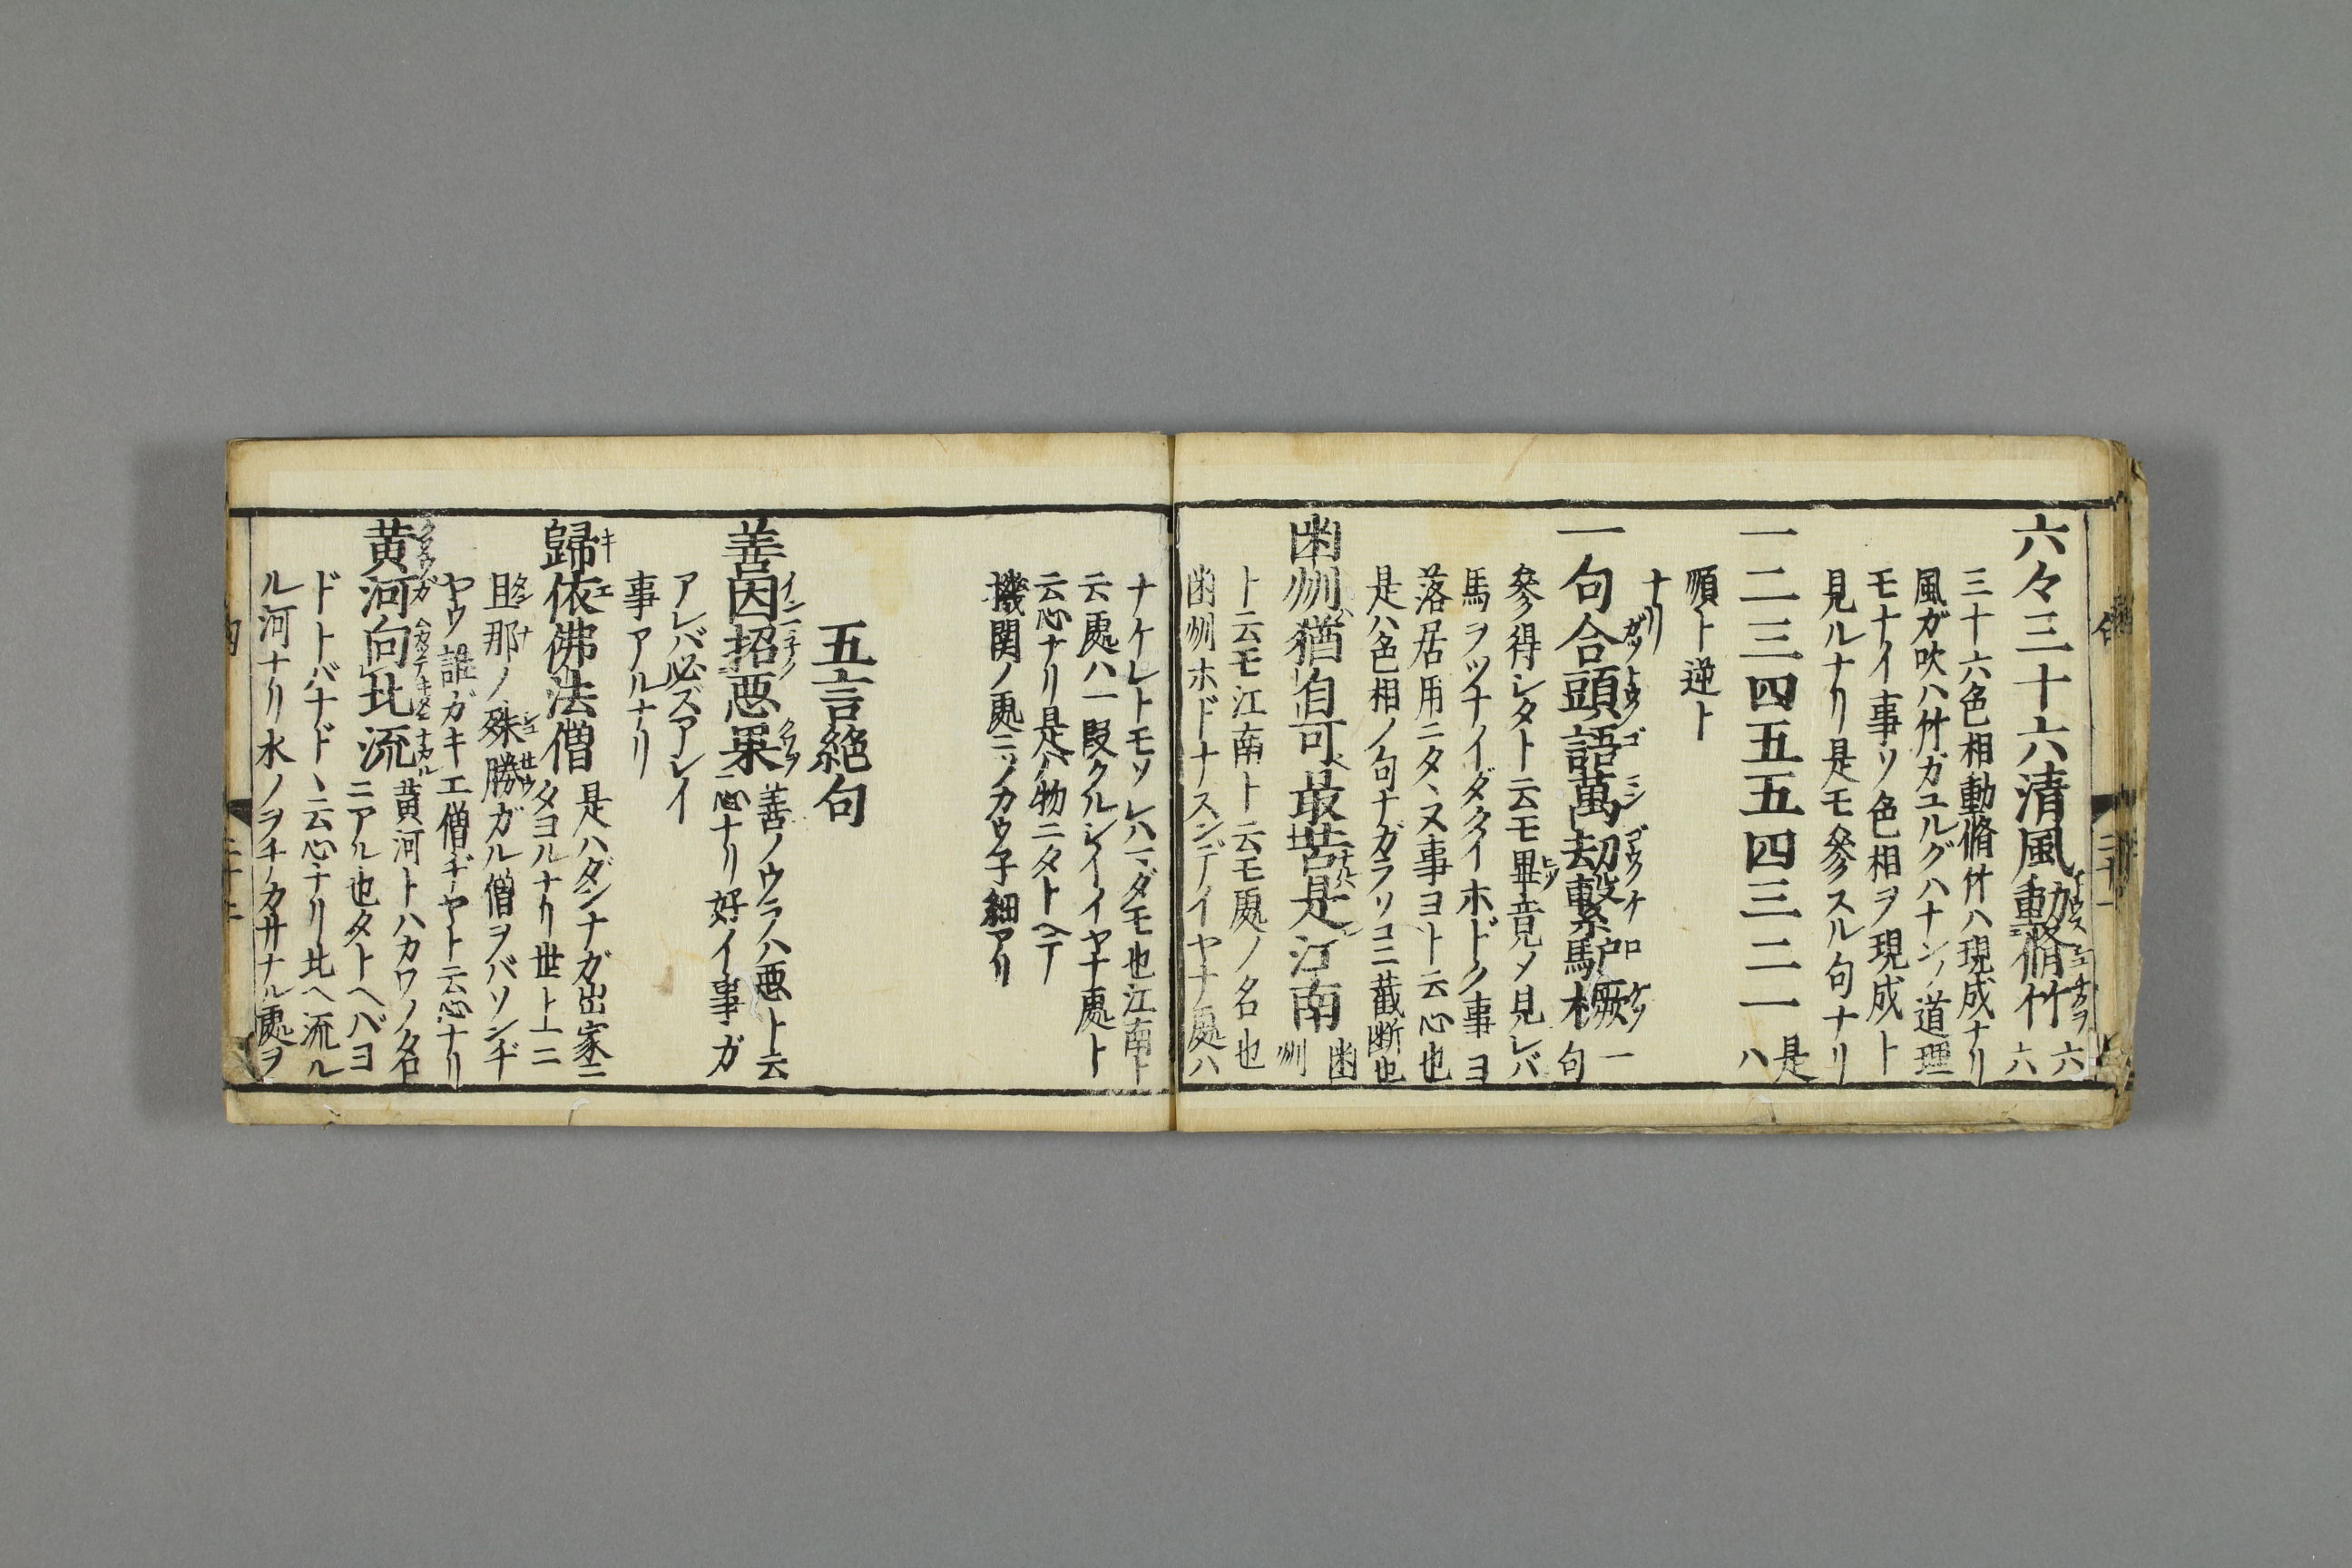 六々三十六清風動脩竹六六
三十六色相動脩竹ハ現成ナリ
風ガ吹ハ竹ガユルグハナンノ道理
モナイ事ソ色相ヲ現成ト
見ルナリ是モ參スル句ナリ
一二三四五五四三二一是ハ
順ト逆ト
ナリ
一句合頭語萬劫繫驢橛一句
參得シタト云モ畢竟〆見レバ
馬ヲツナイダクイホドノ事ヨ
落居用ニタヽヌ事ヨト云心也
是ハ色相ノ句ナガラソコニ截断也
幽州猶自可最苦是江南幽州
ト云モ江南ト云モ處ノ名也
幽州ホドナスンデイヤナ處ハ
ナケレトモソレハマダモ也江南ト
云處ハ一段クルシイイヤナ處ト
云心ナリ是ハ物ニタトヘテ
機関ノ處ニソカウ子細アリ
五言絶句
善因招悪果善ノウラハ悪ト云
心ナリ好イ事ガ
アレバ必ズアシイ
事アルナリ
歸依佛法僧是ハダンナガ出家ニ
タヨルナリ世上ニ
旦那ノ殊勝ガル僧ヲバソンヂ
ヤウ誰ガキエ僧ヂヤト云心ナリ
黄河向北流黄河トハカワノ名
ニアル也タトヘバヨ
ドトバナドヽ云心ナリ北ヘ流ル
ル河ナリ水ノヲチカサナル處ヲ